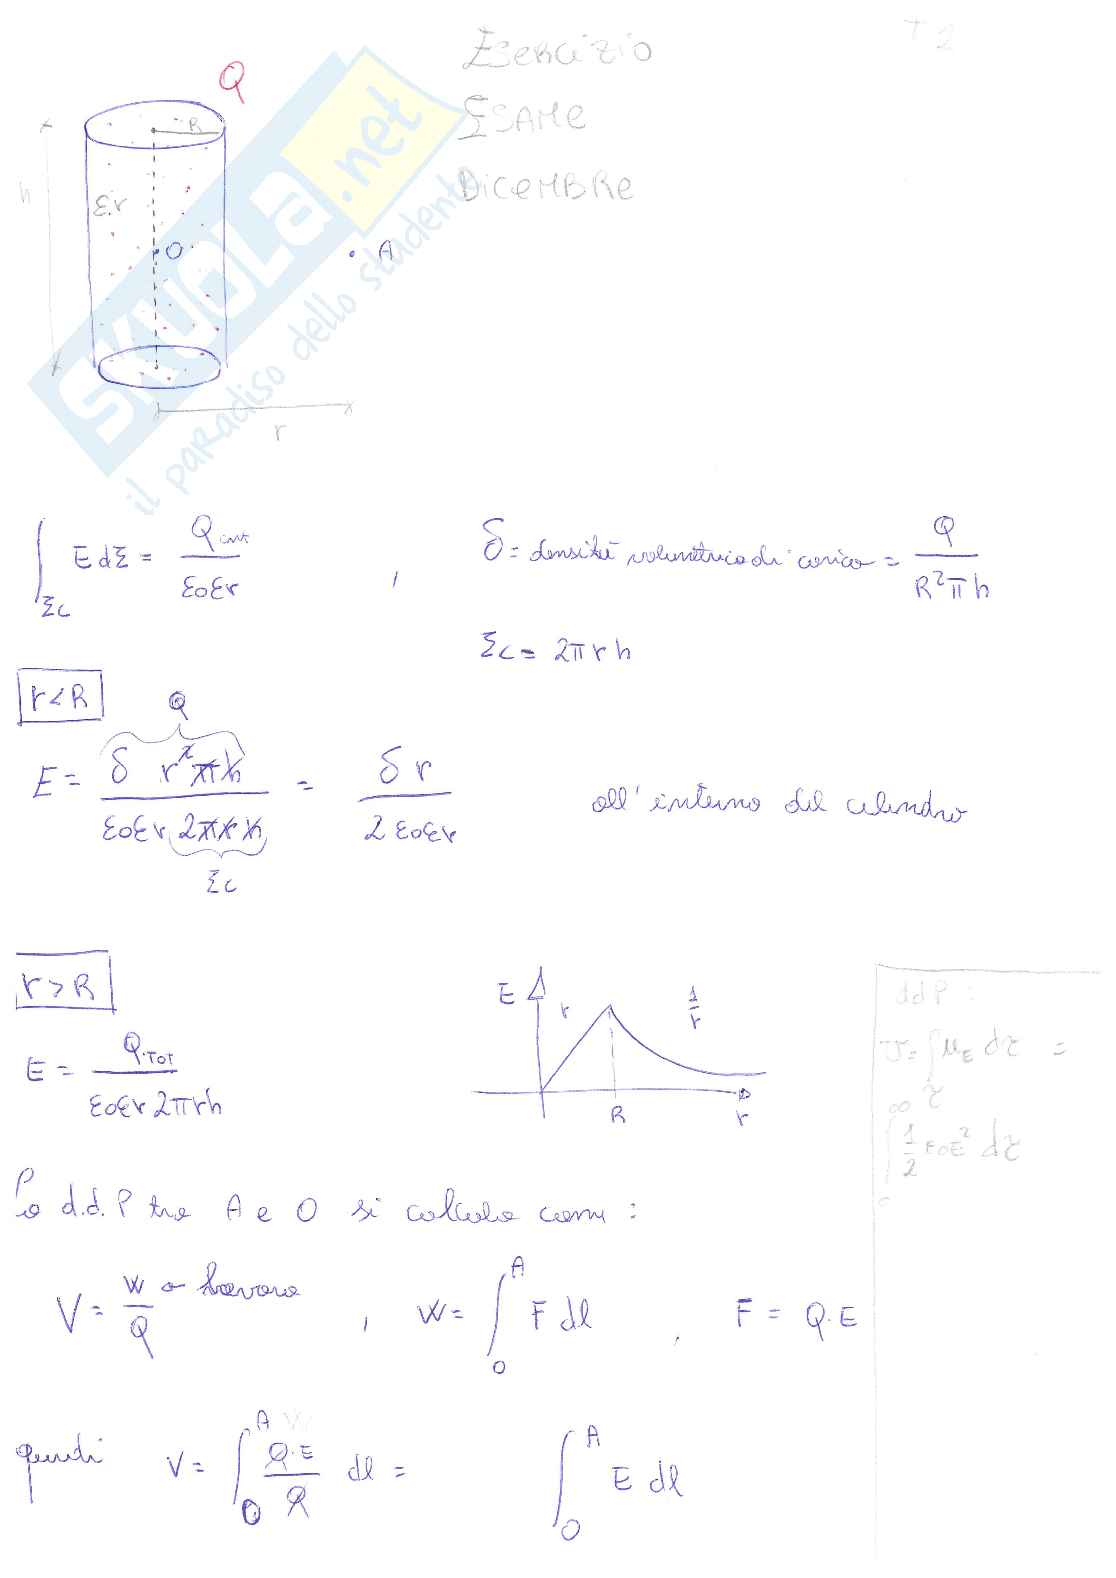 Esercizio
T2
Esame
Dicembre
Q
R
h
εr
O
A
r
SKUOLA.net
il paradiso dello studente
∫Σc E dΣ = Qint / ε0εr , δ = densità volumetrica di carica = Q / R²πh
Σc = 2πrh
r<R
Q
E = δ r²πh / ε0εr 2πrh = δr / 2ε0εr all'interno del cilindro
Σc
r>R
E = QTOT / ε0εr 2πrh
E r 1/r
R r
ddP :
U = ∫τ uE dτ =
∫0^∞ 1/2 ε0E² dτ
la d.d.P tra A e O si calcola come :
V = W / Q → lavoro , W = ∫O^A F dl , F = Q·E
quindi V = ∫O^A Q·E / Q dl = ∫O^A E dl